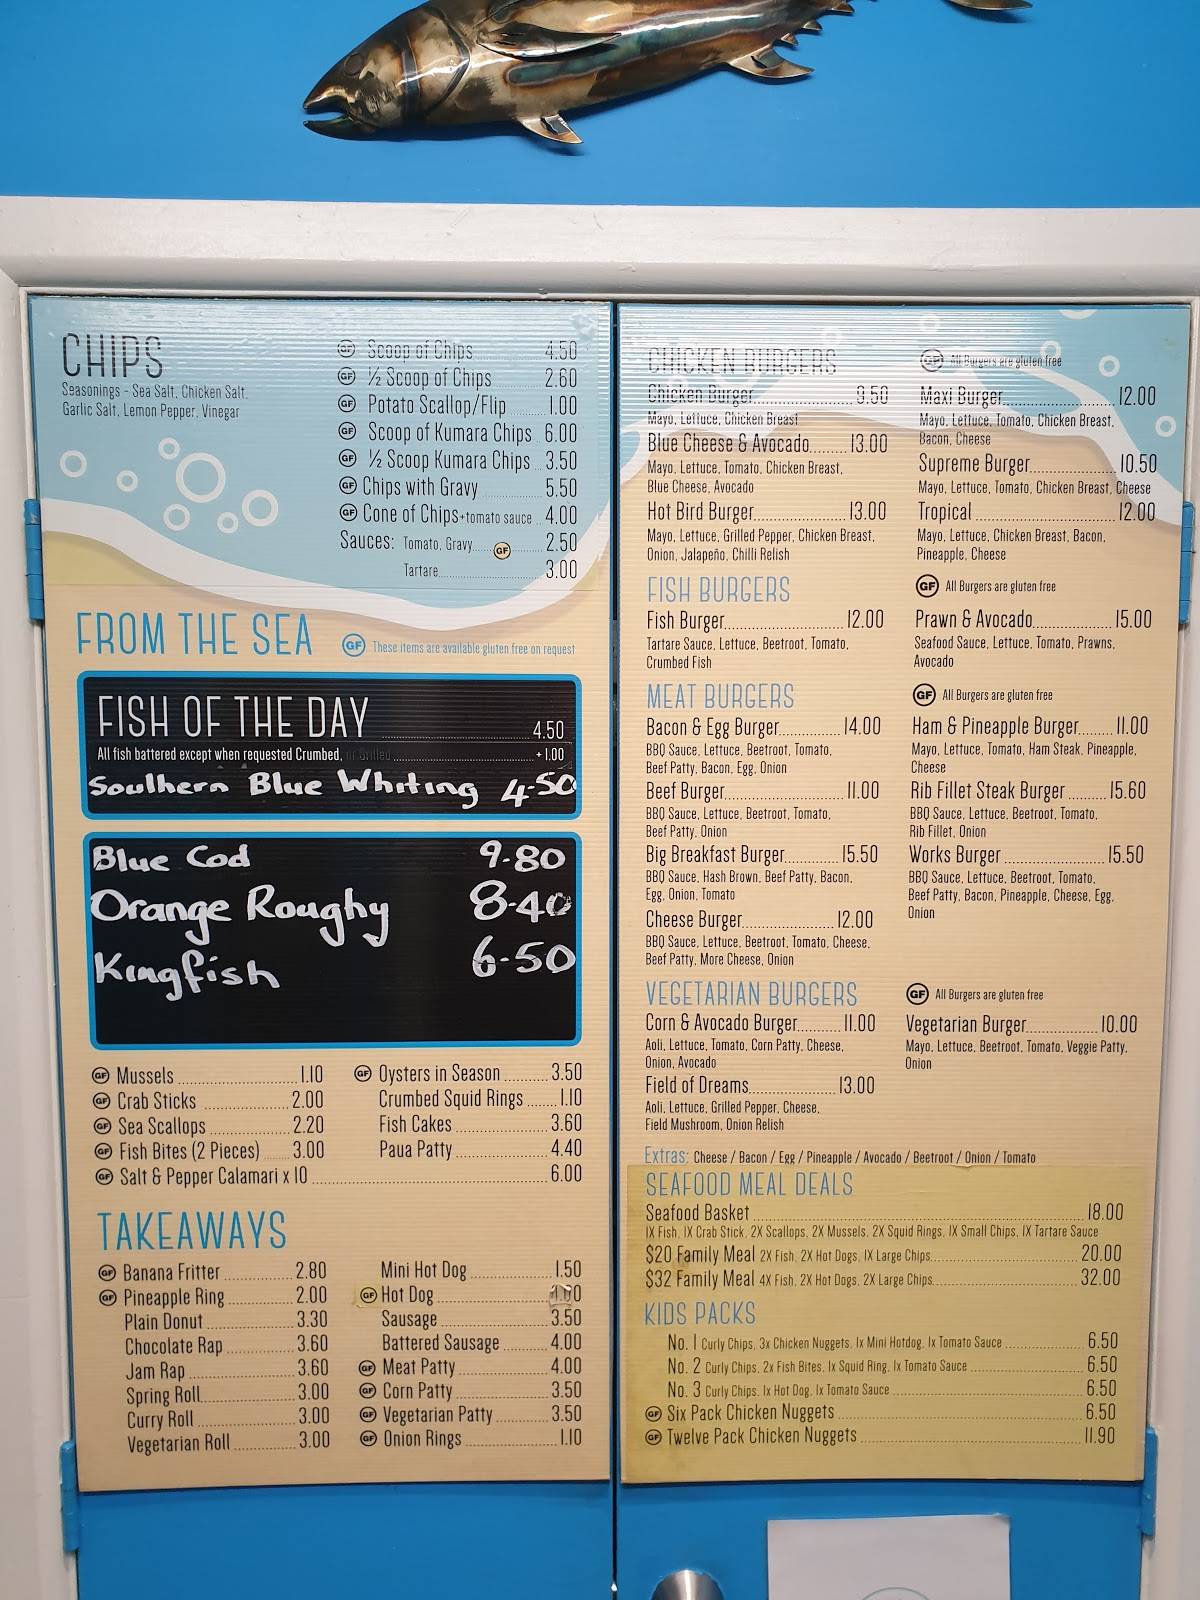 CHIPS
Seasonings - Sea Salt, Chicken Salt,
Garlic Salt, Lemon Pepper, Vinegar
GF Scoop of Chips 4.50
GF ½ Scoop of Chips 2.60
GF Potato Scallop/Flip 1.00
GF Scoop of Kumara Chips 6.00
GF ½ Scoop Kumara Chips 3.50
GF Chips with Gravy 5.50
GF Cone of Chips+tomato sauce 4.00
Sauces: Tomato, Gravy GF 2.50
Tartare 3.00
FROM THE SEA
GF These items are available gluten free on request
FISH OF THE DAY 4.50
All fish battered except when requested Crumbed, or Grilled + 1.00
Southern Blue Whiting 4-50
Blue Cod 9-80
Orange Roughy 8-40
Kingfish 6-50
GF Mussels 1.10
GF Crab Sticks 2.00
GF Sea Scallops 2.20
GF Fish Bites (2 Pieces) 3.00
GF Salt & Pepper Calamari x 10 6.00
GF Oysters in Season 3.50
Crumbed Squid Rings 1.10
Fish Cakes 3.60
Paua Patty 4.40
TAKEAWAYS
GF Banana Fritter 2.80
GF Pineapple Ring 2.00
Plain Donut 3.30
Chocolate Rap 3.60
Jam Rap 3.60
Spring Roll 3.00
Curry Roll 3.00
Vegetarian Roll 3.00
Mini Hot Dog 1.50
GF Hot Dog
Sausage 3.50
Battered Sausage 4.00
GF Meat Patty 4.00
GF Corn Patty 3.50
GF Vegetarian Patty 3.50
GF Onion Rings 1.10
CHICKEN BURGERS
GF All Burgers are gluten free
Chicken Burger 9.50
Mayo, Lettuce, Chicken Breast
Blue Cheese & Avocado 13.00
Mayo, Lettuce, Tomato, Chicken Breast,
Blue Cheese, Avocado
Hot Bird Burger 13.00
Mayo, Lettuce, Grilled Pepper, Chicken Breast,
Onion, Jalapeño, Chilli Relish
Maxi Burger 12.00
Mayo, Lettuce, Tomato, Chicken Breast,
Bacon, Cheese
Supreme Burger 10.50
Mayo, Lettuce, Tomato, Chicken Breast, Cheese
Tropical 12.00
Mayo, Lettuce, Chicken Breast, Bacon,
Pineapple, Cheese
FISH BURGERS
GF All Burgers are gluten free
Fish Burger 12.00
Tartare Sauce, Lettuce, Beetroot, Tomato,
Crumbed Fish
Prawn & Avocado 15.00
Seafood Sauce, Lettuce, Tomato, Prawns,
Avocado
MEAT BURGERS
GF All Burgers are gluten free
Bacon & Egg Burger 14.00
BBQ Sauce, Lettuce, Beetroot, Tomato,
Beef Patty, Bacon, Egg, Onion
Beef Burger 11.00
BBQ Sauce, Lettuce, Beetroot, Tomato,
Beef Patty, Onion
Big Breakfast Burger 15.50
BBQ Sauce, Hash Brown, Beef Patty, Bacon,
Egg, Onion, Tomato
Cheese Burger 12.00
BBQ Sauce, Lettuce, Beetroot, Tomato, Cheese,
Beef Patty, More Cheese, Onion
Ham & Pineapple Burger 11.00
Mayo, Lettuce, Tomato, Ham Steak, Pineapple,
Cheese
Rib Fillet Steak Burger 15.60
BBQ Sauce, Lettuce, Beetroot, Tomato,
Rib Fillet, Onion
Works Burger 15.50
BBQ Sauce, Lettuce, Beetroot, Tomato,
Beef Patty, Bacon, Pineapple, Cheese, Egg,
Onion
VEGETARIAN BURGERS
GF All Burgers are gluten free
Corn & Avocado Burger 11.00
Aoli, Lettuce, Tomato, Corn Patty, Cheese,
Onion, Avocado
Field of Dreams 13.00
Aoli, Lettuce, Grilled Pepper, Cheese,
Field Mushroom, Onion Relish
Vegetarian Burger 10.00
Mayo, Lettuce, Beetroot, Tomato, Veggie Patty,
Onion
Extras: Cheese / Bacon / Egg / Pineapple / Avocado / Beetroot / Onion / Tomato
SEAFOOD MEAL DEALS
Seafood Basket 18.00
1X Fish, 1X Crab Stick, 2X Scallops, 2X Mussels, 2X Squid Rings, 1X Small Chips, 1X Tartare Sauce
$20 Family Meal 2X Fish, 2X Hot Dogs, 1X Large Chips 20.00
$32 Family Meal 4X Fish, 2X Hot Dogs, 2X Large Chips 32.00
KIDS PACKS
No. 1 Curly Chips, 3x Chicken Nuggets, 1x Mini Hotdog, 1x Tomato Sauce 6.50
No. 2 Curly Chips, 2x Fish Bites, 1x Squid Ring, 1x Tomato Sauce 6.50
No. 3 Curly Chips, 1x Hot Dog, 1x Tomato Sauce 6.50
GF Six Pack Chicken Nuggets 6.50
GF Twelve Pack Chicken Nuggets 11.90